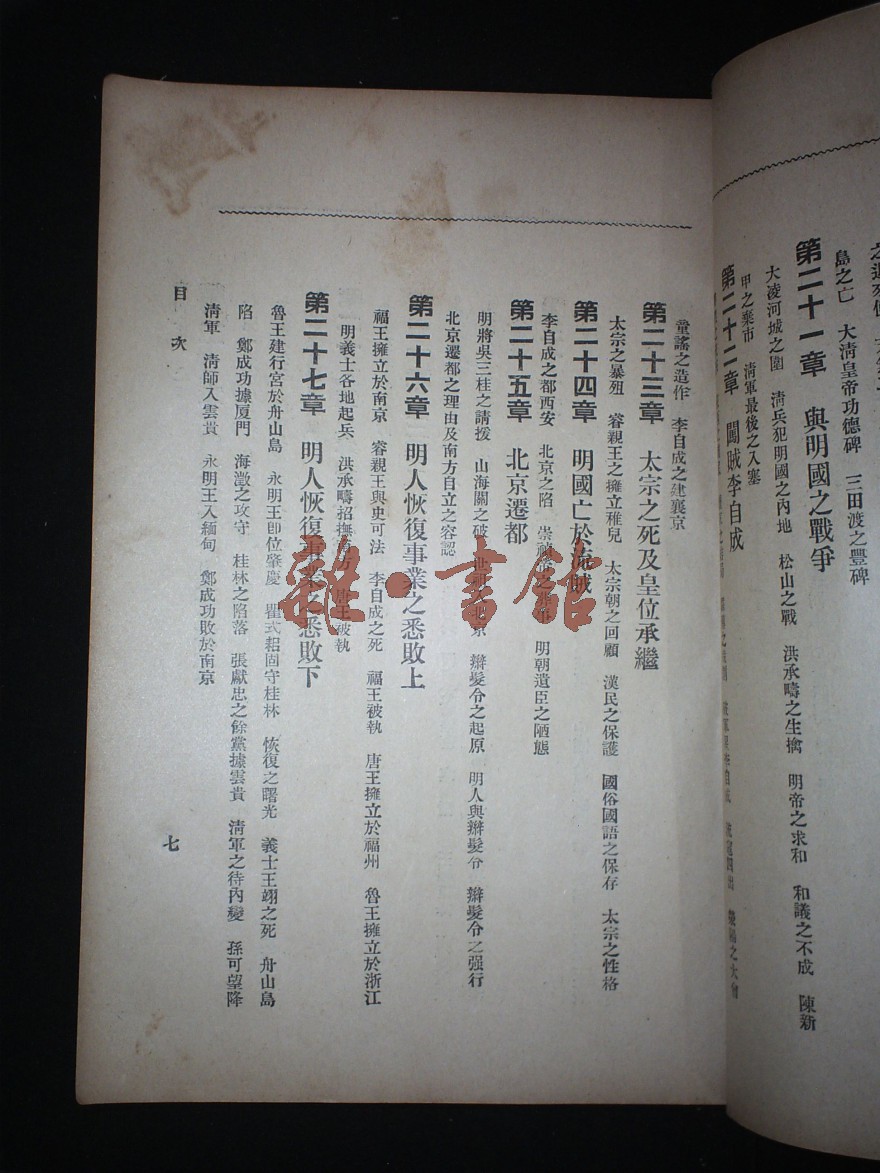 島之亡 大淸皇帝功德碑 三田渡之豐碑
第二十一章 與明國之戰爭
大凌河城之圍 淸兵犯明國之內地 松山之戰 洪承疇之生擒 明帝之求和 和議之不成 陳新
甲之棄市 淸軍最後之入塞
第二十二章 闖賊李自成
童謠之造作 李自成之建襄京
第二十三章 太宗之死及皇位承繼
太宗之暴殂 睿親王之擁立稚兒 太宗朝之回顧 漢民之保護 國俗國語之保存 太宗之性格
第二十四章 明國亡於流賊
李自成之都西安 北京之陷 崇禎帝之 明朝遺臣之陋態
第二十五章 北京遷都
明將吳三桂之請援 山海關之破 世祖入北京 辮髮令之起原 明人與辮髮令 辮髮令之强行
北京遷都之理由及南方自立之容認
第二十六章 明人恢復事業之悉敗上
福王擁立於南京 睿親王與史可法 李自成之死 福王被執 唐王擁立於福州 魯王擁立於浙江
明義士各地起兵 洪承疇招撫南方 唐王被執
第二十七章 明人恢復事業之悉敗下
魯王建行宮於舟山島 永明王卽位肇慶 瞿式耜固守桂林 恢復之曙光 義士王翊之死 舟山島
陷 鄭成功據厦門 海澂之攻守 桂林之陷落 張獻忠之餘黨據雲貴 淸軍之待內變 孫可望降
淸軍 淸師入雲貴 永明王入緬甸 鄭成功敗於南京
目次
七
雜·書館